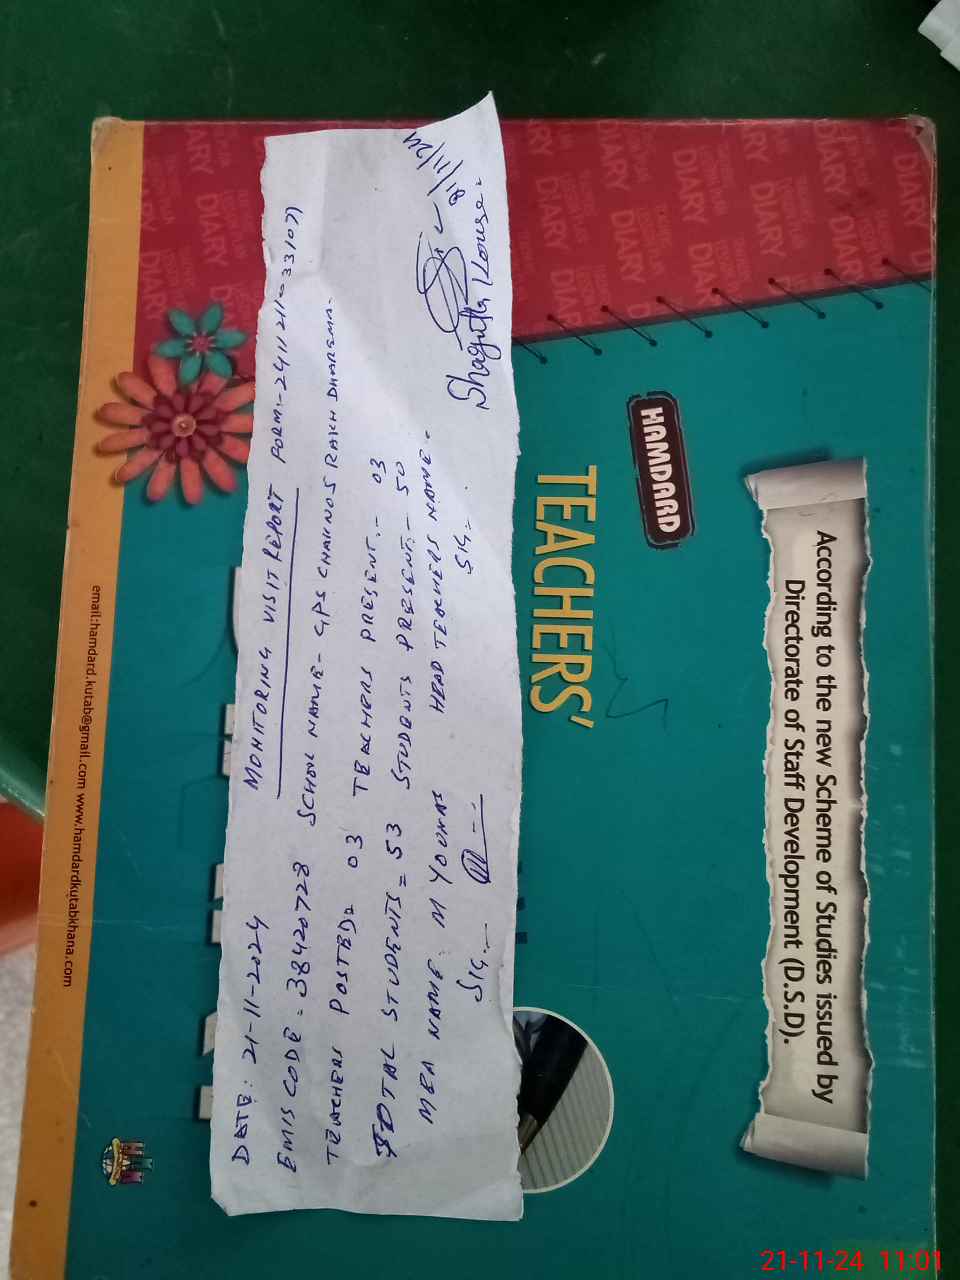 DATE: 21-11-2024 MONITORING VISIT REPORT FORM:-241121
EMIS CODE = 38420728 SCHOOL NAME- GPS CHAK NO5 RAKH DHAREMA-
TEACHERS POSTED= 03 TEACHERS PRESENT:- 03
TOTAL STUDENTS = 53 STUDENTS PRESENT:- 50
MEA NAME: M YOUNAS HEAD TEACHERS NAME-
SIG:- SIG-
21/11/24
Shagufta Kouser
HAMDARD
TEACHERS'
DIARY
According to the new Scheme of Studies issued by
Directorate of Staff Development (D.S.D).
email:hamdard.kutab@gmail.com www.hamdardkutabkhana.com
21-11-24 11:01